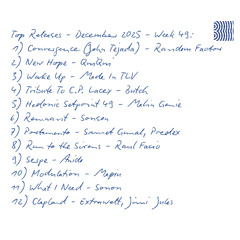 Top Releases - December 2025 - Week 49:
1) Convergence (John Tejada) - Random Factor
2) New Hope - 
3) Wake Up - Made In TLV
4) Tribute To C.P. Lacey - Butch
5) Hedonic Setpoint 49 - Malin Genie
6) Remnant - Sonsen
7) Portamento - Sumit Gunal, Predex
8) Run to the Sirens - Raul Facio
9) Sespe - Avidè
10) Modulation -
11) What I Need - Sonon
12) Clapland - Extrawelt, Jinni Jules